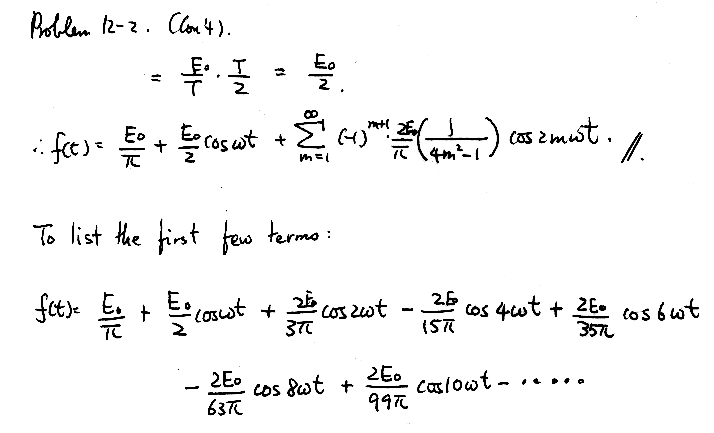 Problem 12-2. (Con 4).
= E₀/T · T/2 = E₀/2.
∴ f(t) = E₀/π + E₀/2 cos ωt + ∑_{m=1}^{∞} (-1)^{m+1} · 2E₀/π (1/(4m²-1)) cos 2mωt. //.
To list the first few terms :
f(t) = E₀/π + E₀/2 cos ωt + 2E₀/3π cos 2ωt - 2E₀/15π cos 4ωt + 2E₀/35π cos 6ωt
- 2E₀/63π cos 8ωt + 2E₀/99π cos 10ωt - ......